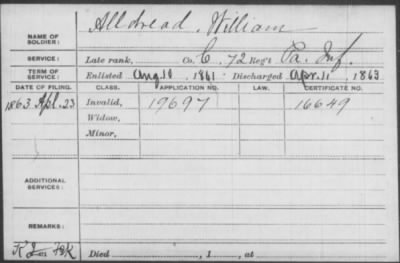 NAME OF SOLDIER: Alldread, William
SERVICE: Late rank, Co. C, 72 Reg't Pa. Inf.
TERM OF SERVICE: Enlisted Aug. 10, 1861 Discharged Apr. 11, 1863
DATE OF FILING. CLASS. APPLICATION NO. LAW. CERTIFICATE NO.
1863 Apl. 23 Invalid, 19697 16649
Widow,
Minor,
ADDITIONAL SERVICES:
REMARKS:
Died , 1 , at